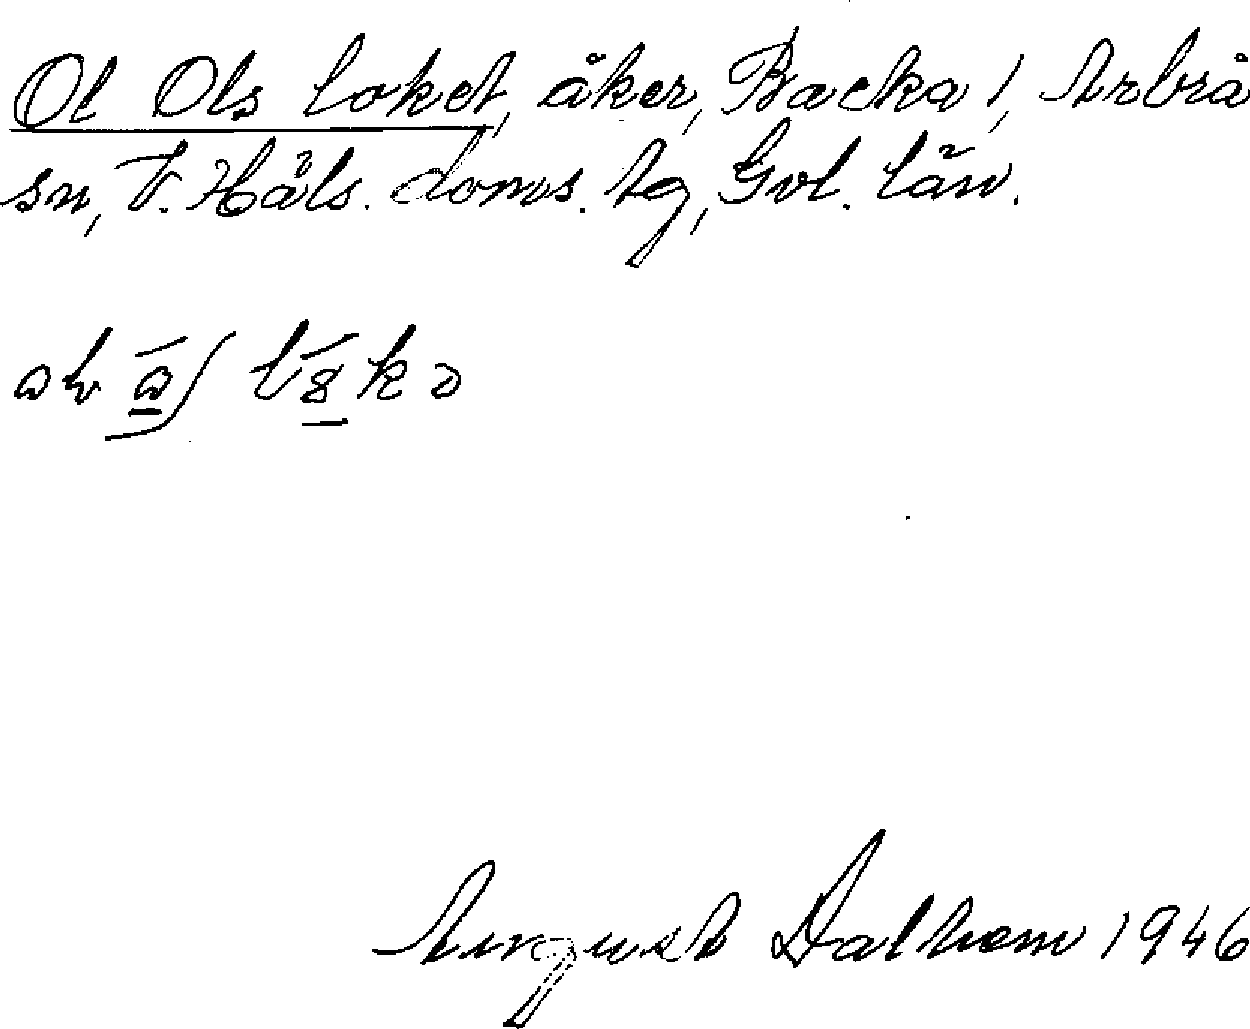 Ol Ols loket, åker, Backa 1, Arbrå
sn, V. Häls. doms. tg, Gvl. län.
August Dalhem 1946